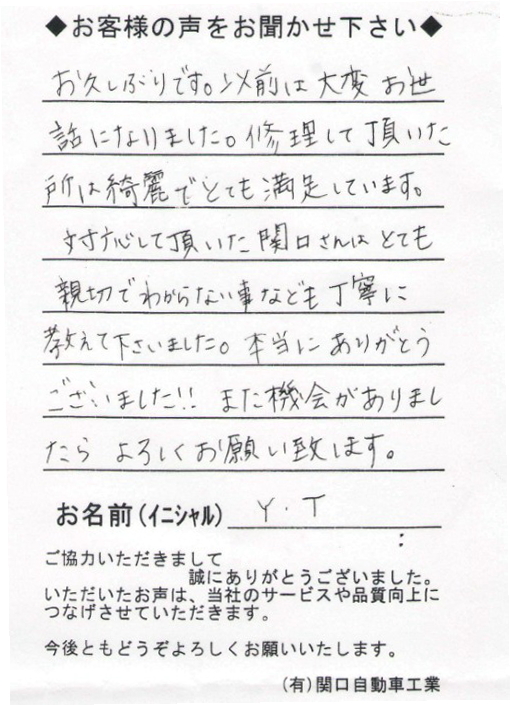 ◆お客様の声をお聞かせ下さい◆
お久しぶりです。以前は大変お世
話になりました。修理して頂いた
所は綺麗でとても満足しています。
対応して頂いた関口さんはとても
親切でわからない事なども丁寧に
教えて下さいました。本当にありがとう
ございました!! また機会がありまし
たら よろしくお願い致します。
お名前(イニシャル) Y.T
:
ご協力いただきまして
誠にありがとうございました。
いただいたお声は、当社のサービスや品質向上に
つなげさせていただきます。
今後ともどうぞよろしくお願いいたします。
(有)関口自動車工業